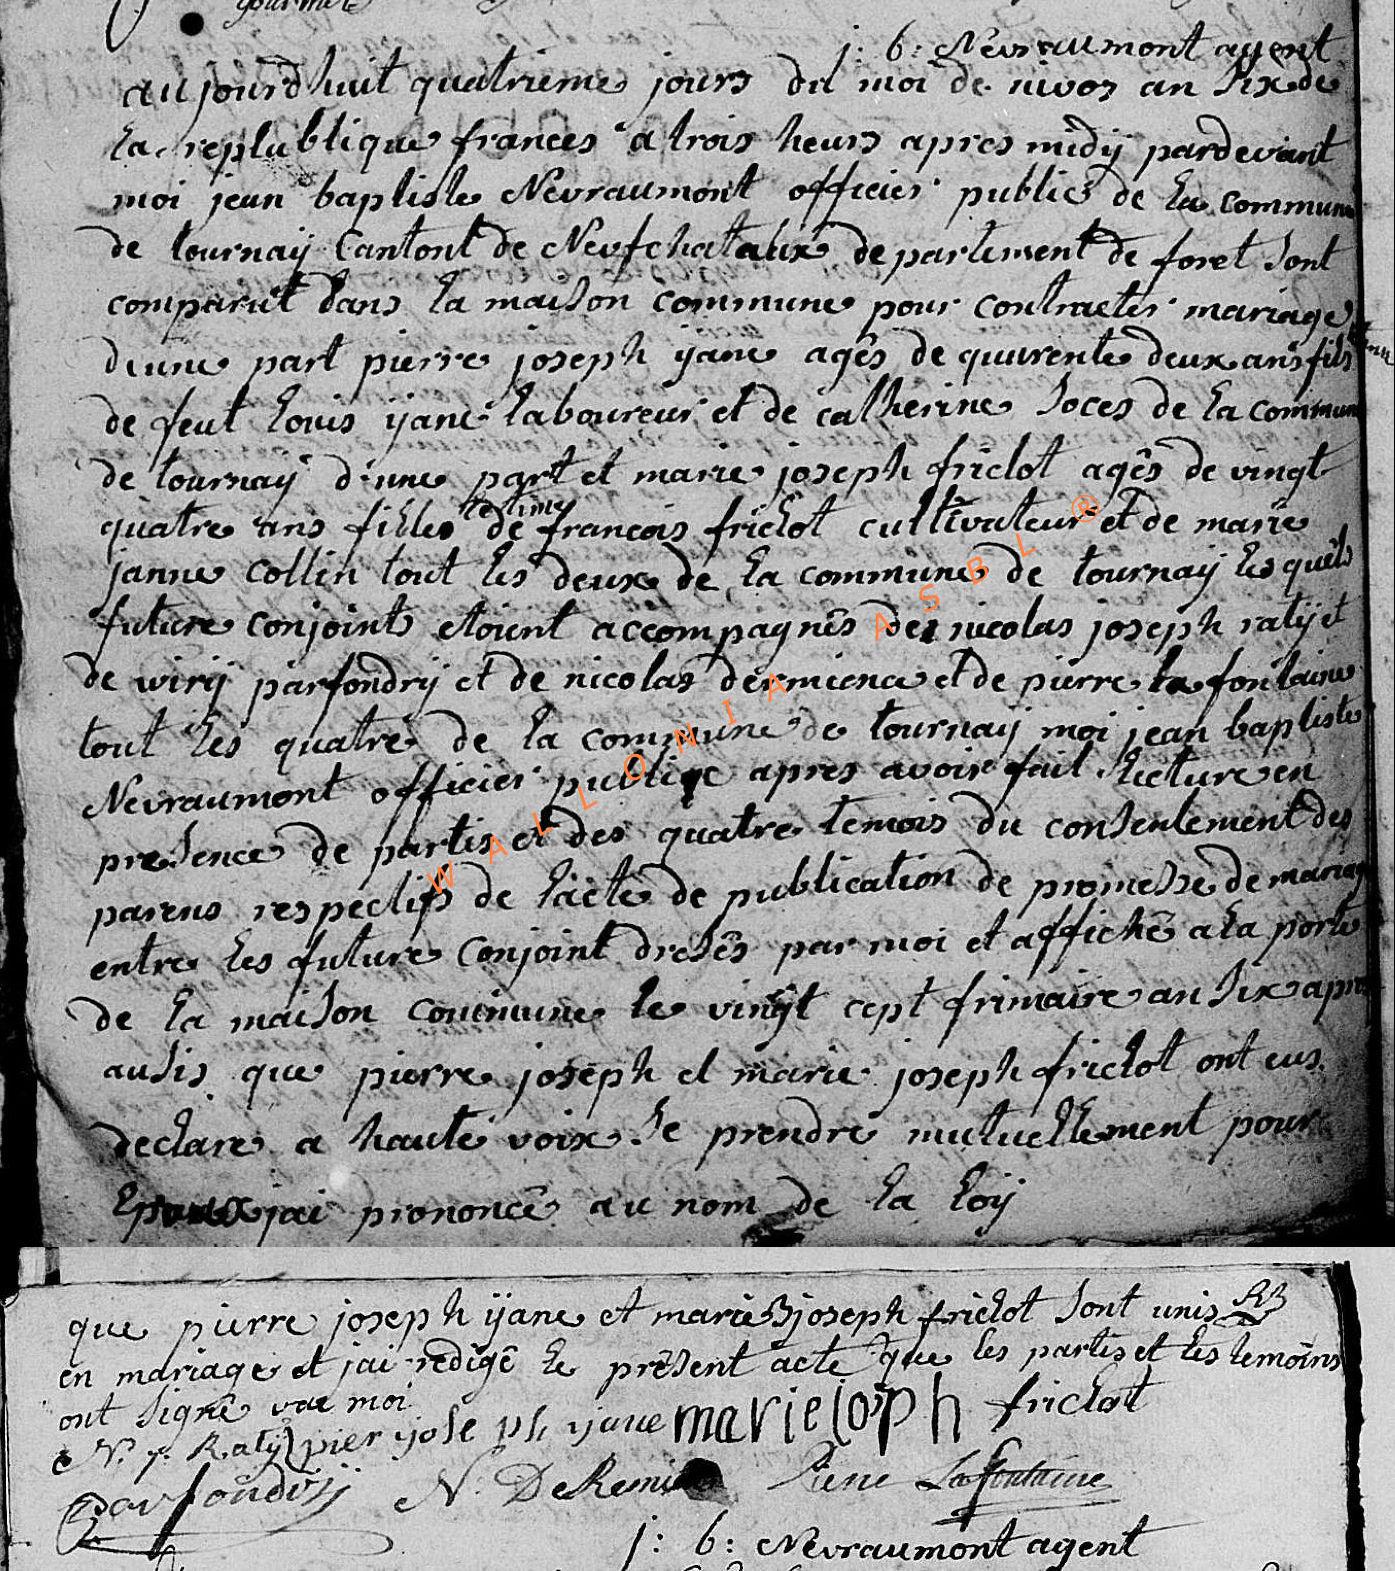 j: b: Nevraumont agent
aujourdhuit quatrieme jours du moi de nivos an Six de
la replublique frances a trois heurs apres midij pardevant
moi jean baptiste Nevraumont officier publics de la commune
de tournaij Cantont de Neufchataux departement de foret Sont
comparut dans la maison commune pour contracter mariage
deune part pierre joseph ijane agês de quarente deux ans fils
de feut louis ijane laboureur et de catherine Joces de la commun
de tournaij dune part et marie joseph frictot agês de vingt
quatre ans filles letime de francois frictot cultivateur et de marie
janne Collin tout les deux de la commune de tournaij les quels
future conjoints etoient accompagnês des nicolas joseph ratij et
de wirij parfondrij et de nicolas dermience et de pierre la fontaine
tout les quatre de la commune de tournaij moi jean baptiste
Nevraumont officier publiqe apres avoir fait lecture en
presence de partis et des quatre temois du consentement des
parens respectifs de lacte de publication de promesse de mariage
entre les future Conjoint dresês par moi et affichê a la porte
de la maison commune le vingt cept frimaire an Six apres
ausis que pierre joseph et marie joseph frictot ont eus
declare a haute voix Se prendre mutuellement pour
Epoux jai prononcê au nom de la loij
que pierre joseph ijane et marie joseph frictot Sont unis
en mariage et jai redigê le prêsent acte que les partis et les temoins
ont Signê vae moi
N. j. Ratij pier ijoseph ijane marieJosph frictot
parfondrij N. DeRemi Piere Lafontaine
j: b: Nevraumont agent
WALLONIA ASBL ®